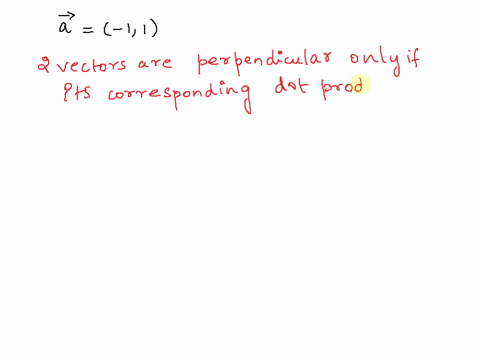 a⃗ = (-1, 1)
2 vectors are perpendicular only if
its corresponding dot prod